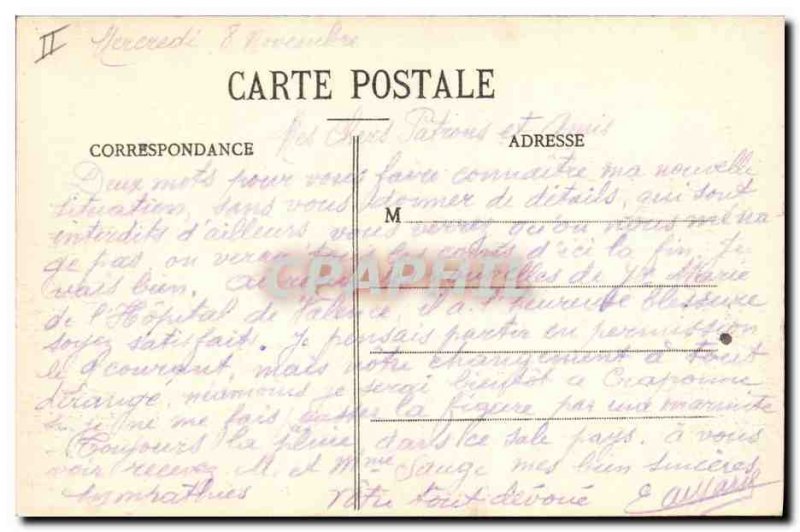 II Mercredi 8 Novembre
CARTE POSTALE
Mes Chers Patrons et Amis
CORRESPONDANCE
ADRESSE
Deux mots pour vous faire connaître ma nouvelle
situation, sans vous donner de détails, qui sont
M
interdits d'ailleurs vous verrez qu'on nous ména
ge pas, on verra les d'ici la fin, Je
vais bien. de Marie
CPAPHIL
de l'Hôpital de Valence, il a l'heureuse blessure
soyez satisfaits. Je pensais partir en permission
le courant, mais notre changement à tout
dérangé, néamoins je serai bientôt à Craponne
si je ne me fais casser la figure par une marmite
Toujours la pluie dans ce sale pays. à vous
voir recevez M. et Mme Sauge mes bien sincères
sympathies Votre tout dévoué